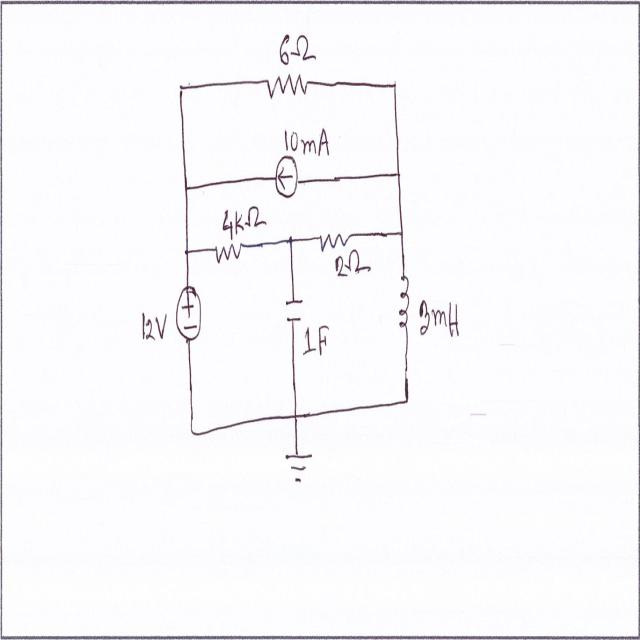 6Ω
10mA
4kΩ
2Ω
12V
1F
3mH